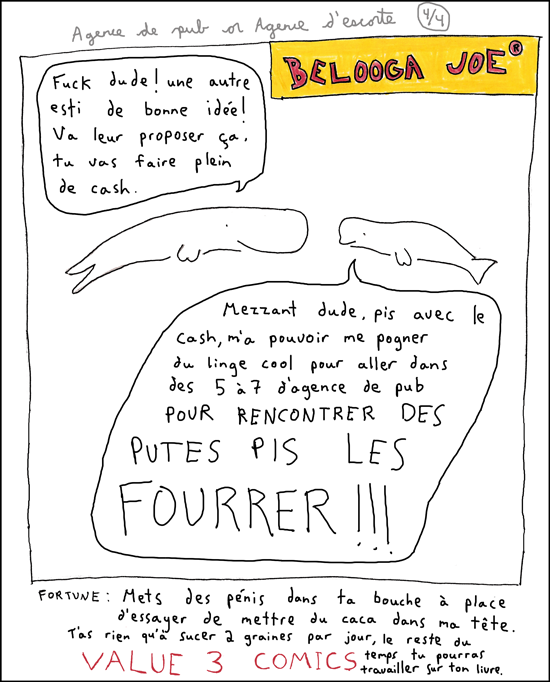 Agence de pub or Agence d'escorte 4/4
BELOOGA JOE®
Fuck dude! une autre
esti de bonne idée!
Va leur proposer ça,
tu vas faire plein
de cash.
Mezzant dude, pis avec le
cash, m'a pouvoir me pogner
du linge cool pour aller dans
des 5 à 7 d'agence de pub
POUR RENCONTRER DES
PUTES PIS LES
FOURRER!!!
FORTUNE: Mets des pénis dans ta bouche à place
d'essayer de mettre du caca dans ma tête.
T'as rien qu'à sucer 2 graines par jour, le reste du
temps tu pourras
travailler sur ton livre.
VALUE 3 COMICS